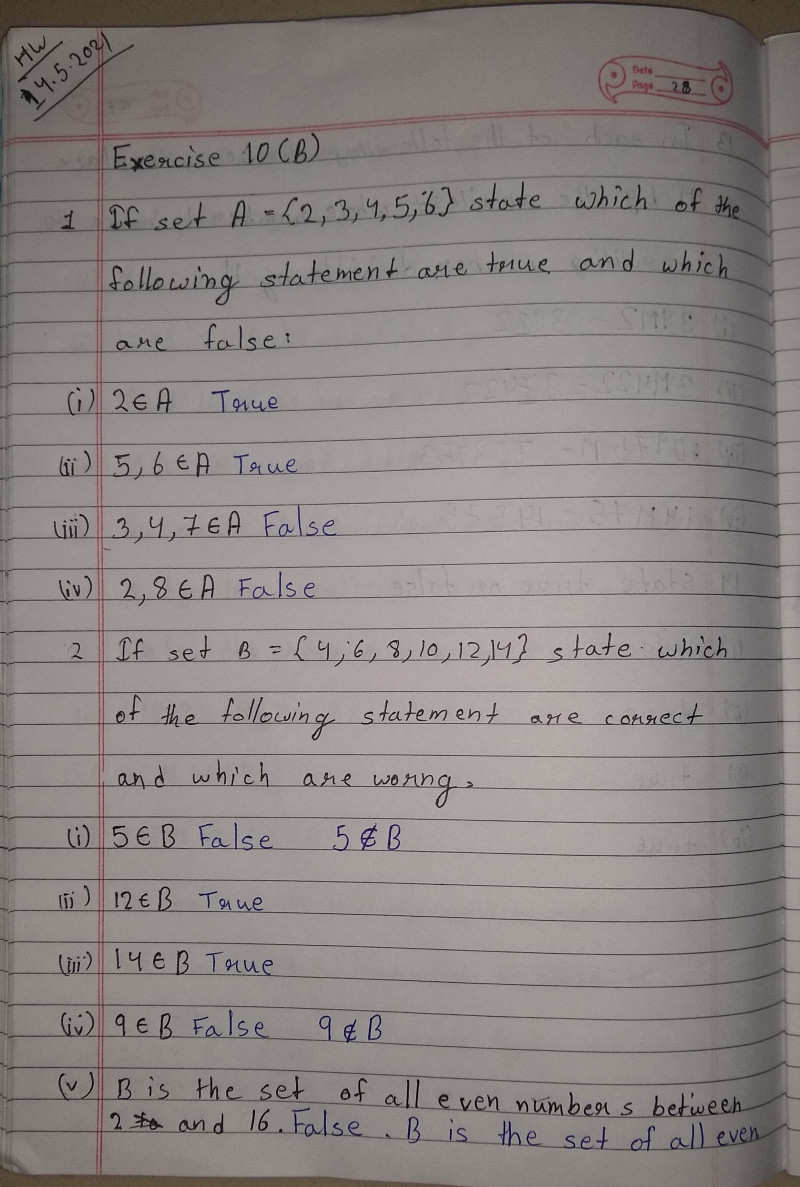 HW
14.5.2021
Date
Page 28
Exercise 10 (B)
1 If set A = {2, 3, 4, 5, 6} state which of the
following statement are true and which
are false:
(i) 2 ∈ A True
(ii) 5, 6 ∈ A True
(iii) 3, 4, 7 ∈ A False
(iv) 2, 8 ∈ A False
2 If set B = {4, 6, 8, 10, 12, 14} state which
of the following statement are correct
and which are worng.
(i) 5 ∈ B False 5 ∉ B
(ii) 12 ∈ B True
(iii) 14 ∈ B True
(iv) 9 ∈ B False 9 ∉ B
(v) B is the set of all even numbers between
2 and 16. False. B is the set of all even